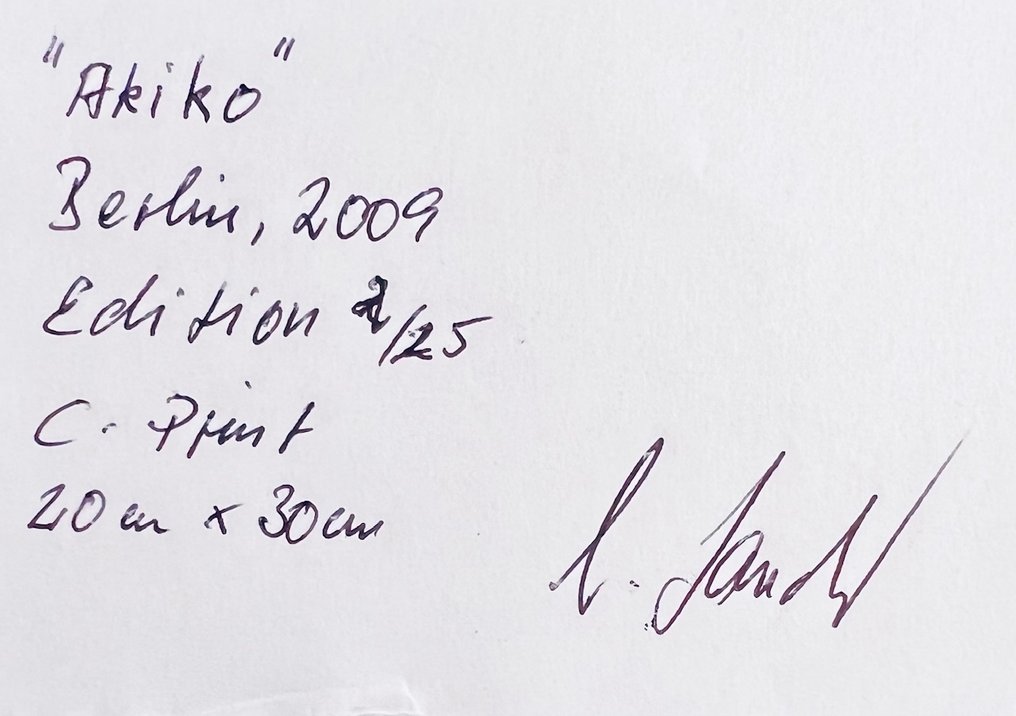 "Akiko"
Berlin, 2009
Edition 2/25
C. Print
20cm x 30cm